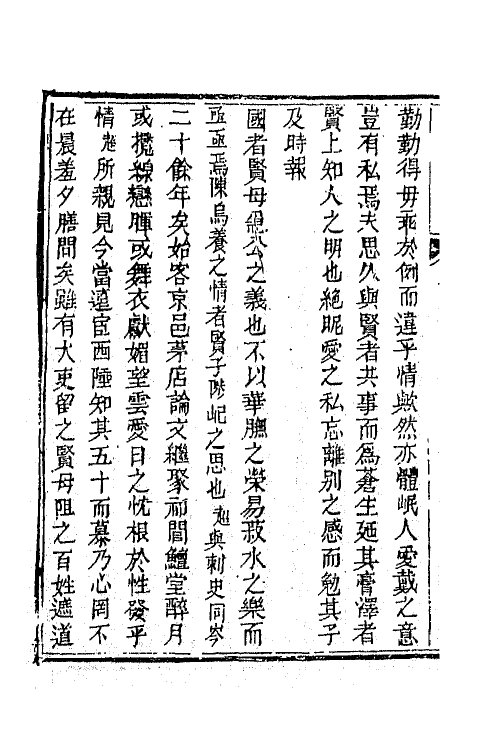 勤勤得毋乖於例而違乎情歟然亦體岷人愛戴之意
豈有私焉夫思久與賢者共事而為蒼生延其膏澤者
賢上知人之明也絕昵愛之私忘離別之感而勉其子
及時報
國者賢母緦公之義也不以華膴之榮易菽水之樂而
亟亟焉陳烏養之情者賢子陟屺之思也 與刺史同岑
二十餘年矣始客京邑茅店論文繼聚祁間鱣堂醉月
或攬線戀暉或舞衣獻媚望雲愛日之忱根於性發乎
情 所親見今當遠宦西陲知其五十而慕乃心罔不
在晨羞夕膳問矣雖有大吏留之賢母阻之百姓遮道